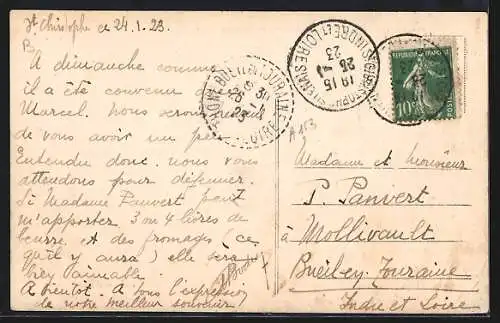 St Christophe ce 24.1.23.
A dimanche comme
il a été convenu
Marcel. Nous serons
de vous avoir un peu
Entendu donc. nous vous
attendons pour déjeuner.
Si Madame Panvert peut
m'apporter 3 ou 4 livres de
beurre, et des fromages (ce
qu'il y aura) elle sera
bien aimable.
A bientôt. A tous l'expression
de notre meilleur souvenir
A 153
Madame et Monsieur
P. Panvert
à Mollivault
Bueil-en-Touraine
Indre et Loire
REPUBLIQUE FRANÇAISE
10c
POSTES
INDRE ET LOIRE
19 15
25 -1
23